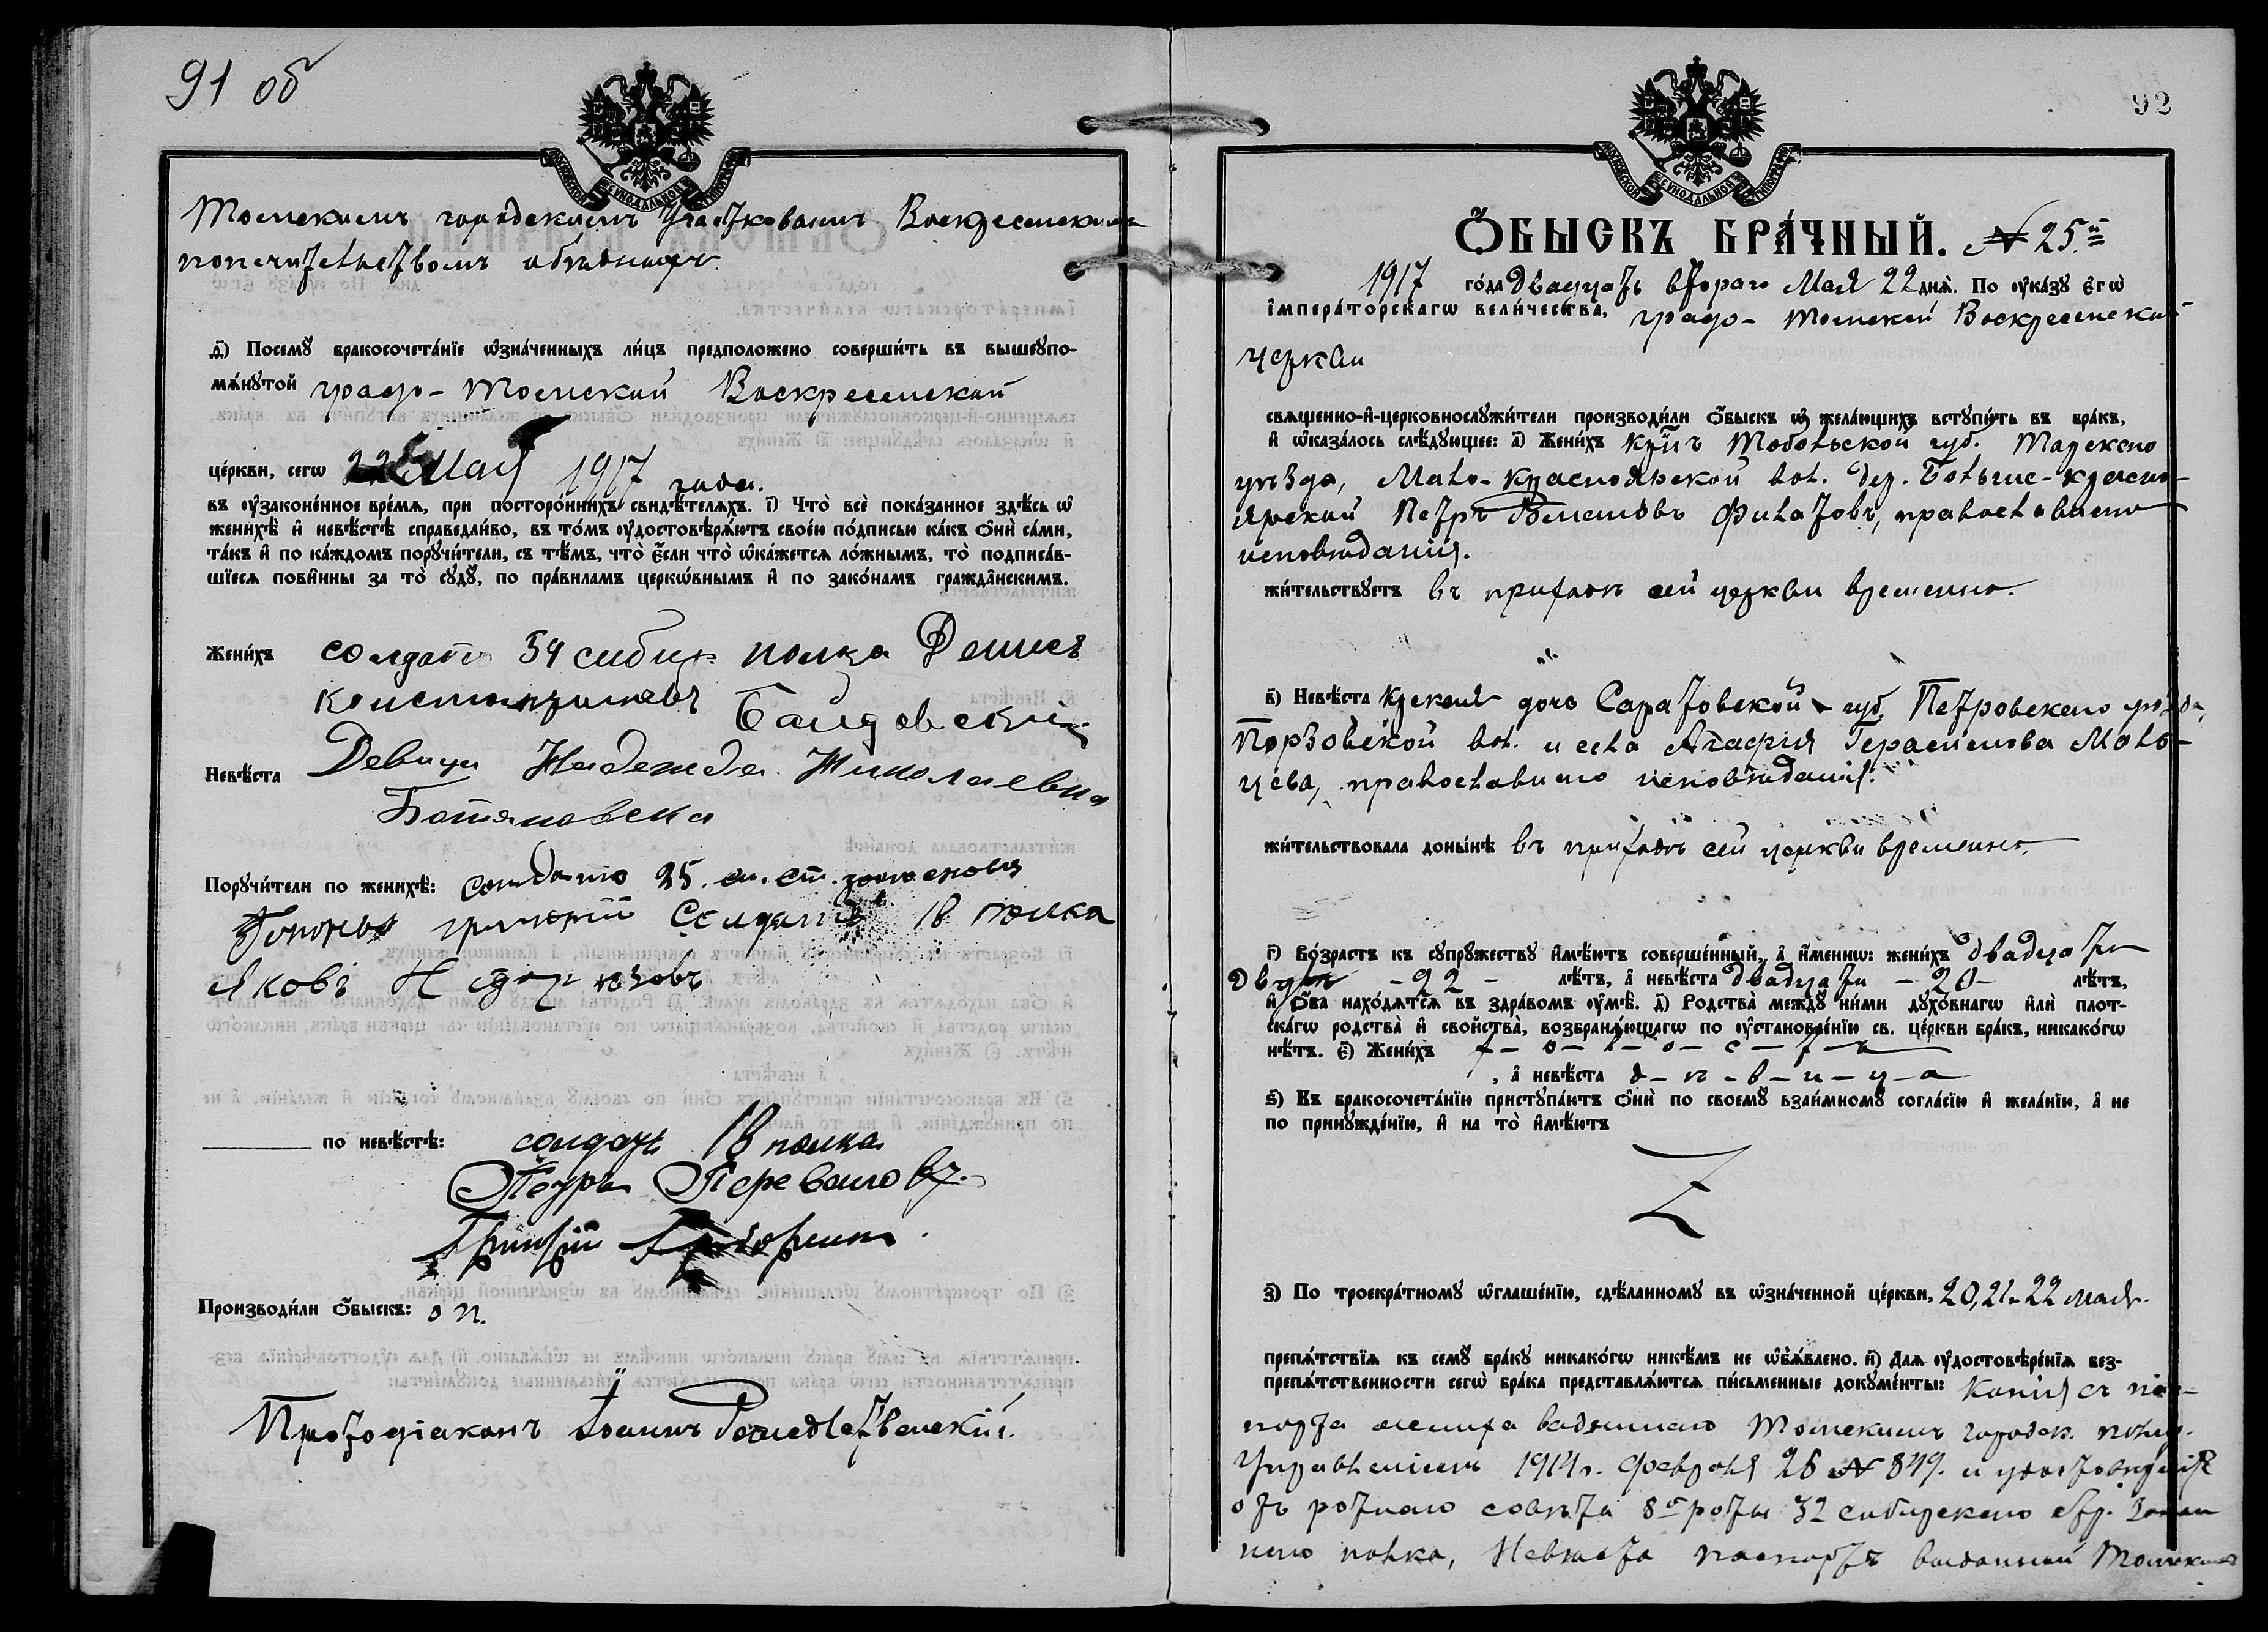 91 об
МОСКОВСКОЙ СѴНОДАЛЬНОЙ ТИПОГРАФІИ
Томскимъ городскимъ Участковымъ Воскресенскимъ
попечительствомъ
д҃) Посемꙋ бракосочетаніе ѡзначенныхъ лицъ предположено совершить въ вышеупо-
мѧнꙋтой градо-Томской Воскресенской
церкви, сегѡ 22 Мая 1917 года.
въ ᲂузаконенное времѧ, при постороннихъ свидѣтелѧхъ. і҃) Что все показанное здѣсь ѡ
женихѣ и невѣстѣ справедливо, въ томъ ᲂудостовѣрѧютъ своею подписью какъ ѻни сами,
такъ и по каждомъ порꙋчители, съ тѣмъ, что если что ѡкажетсѧ ложнымъ, то подписав-
шїесѧ повинны за то сꙋдꙋ, по правиламъ церкѡвнымъ и по законамъ гражданскимъ.
Женихъ солдатъ 54 сибир полка Денисъ
Константиновъ Байдовскій
Невѣста Девица Надежда Николаевна
Порꙋчители по женихѣ: 25.
григорій Солдатъ 18 полка
Яковъ
по невѣстѣ: солдатъ 18 полка
Петръ Переваловъ.
Григорій
Производили ѻбыскъ: о п.
Протодіаконъ Іоаннъ Рождественскій.
92
МОСКОВСКОЙ СѴНОДАЛЬНОЙ ТИПОГРАФІИ
ѺБЫСКЪ БРАЧНЫЙ. № 25й
1917 года Двадцать втораго Мая 22 днѧ. По ᲂуказꙋ Егѡ
Імператорскагѡ Величества, градо-Томской Воскресенской
церкви
свѧщенно-и-церковнослꙋжители производили ѻбыскъ ѡ желающихъ встꙋпить въ бракъ,
и ѡказалось слѣдꙋющее: а҃) Женихъ кр-нъ Тобольской губ. Тарскаго
уѣзда, Мало-Красноярской вол. дер. Больше-Красно-
ярской Петръ Филатовъ, православнаго
исповѣданія.
жительствꙋетъ въ приходѣ сей церкви временно.
в҃) Невѣста дочь Саратовской губ. Петровскаго уѣзда,
вол. и села Агафія Герасимова Моло-
цева, православнаго исповѣданія.
жительствовала донынѣ въ приходѣ сей церкви временно.
г҃) Возрастъ къ сꙋпрꙋжествꙋ имѣютъ совершенный, а именнѡ: женихъ двадцати
двухъ - 22 - лѣтъ, а невѣста двадцати - 20 - лѣтъ,
и ѻба находѧтсѧ въ здравомъ ᲂумѣ. д҃) Родства междꙋ ними дꙋховнагѡ или плот-
скагѡ родства и свойства, возбранѧющагѡ по ᲂустановленїю св. церкви бракъ, никакогѡ
нѣтъ. є҃) Женихъ х-о-л-о-с-т-ъ
, а невѣста д-ѣ-в-и-ц-а
ѕ҃) Въ бракосочетанїю пристꙋпаютъ ѻни по своемꙋ взаимномꙋ согласїю и желанїю, а не
по принꙋжденїю, и на то имѣютъ
Z
з҃) По троекратномꙋ ѡглашенїю, сдѣланномꙋ въ ѡзначенной церкви, 20, 21 и 22 мая.
препѧтствїѧ къ семꙋ бракꙋ никакогѡ никѣмъ не ѡбъѧвлено. и҃) Длѧ ᲂудостовѣренїѧ без-
препѧтственности сегѡ брака представлѧютсѧ письменные докꙋменты: Копія съ пас-
порта жениха выданнаго Томскимъ городск. полиц.
Управленіемъ 1914 г. февраля 26 № 849. и удостовѣреніе
отъ ротнаго совѣта 8й роты 32 сибирскаго стр. запас
наго полка, Невѣста паспортъ выданный Томскимъ